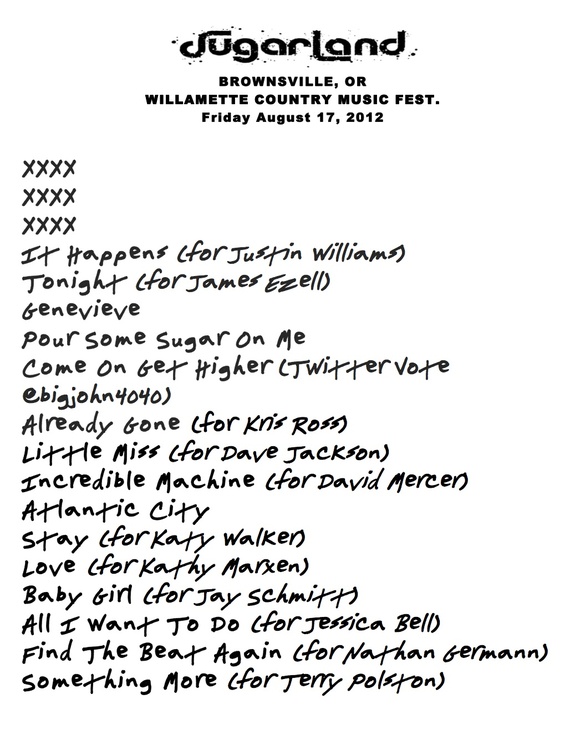 sugarland
BROWNSVILLE, OR
WILLAMETTE COUNTRY MUSIC FEST.
Friday August 17, 2012
XXXX
XXXX
XXXX
It Happens (for Justin Williams)
Tonight (for James Ezell)
Genevieve
Pour Some Sugar On Me
Come On Get Higher (Twitter Vote
@bigjohn4040)
Already Gone (for Kris Ross)
Little Miss (for Dave Jackson)
Incredible Machine (for David Mercer)
Atlantic City
Stay (for Katy Walker)
Love (for Kathy Marxen)
Baby Girl (for Jay Schmitt)
All I Want To Do (for Jessica Bell)
Find The Beat Again (for Nathan Germann)
Something More (for Terry Polston)